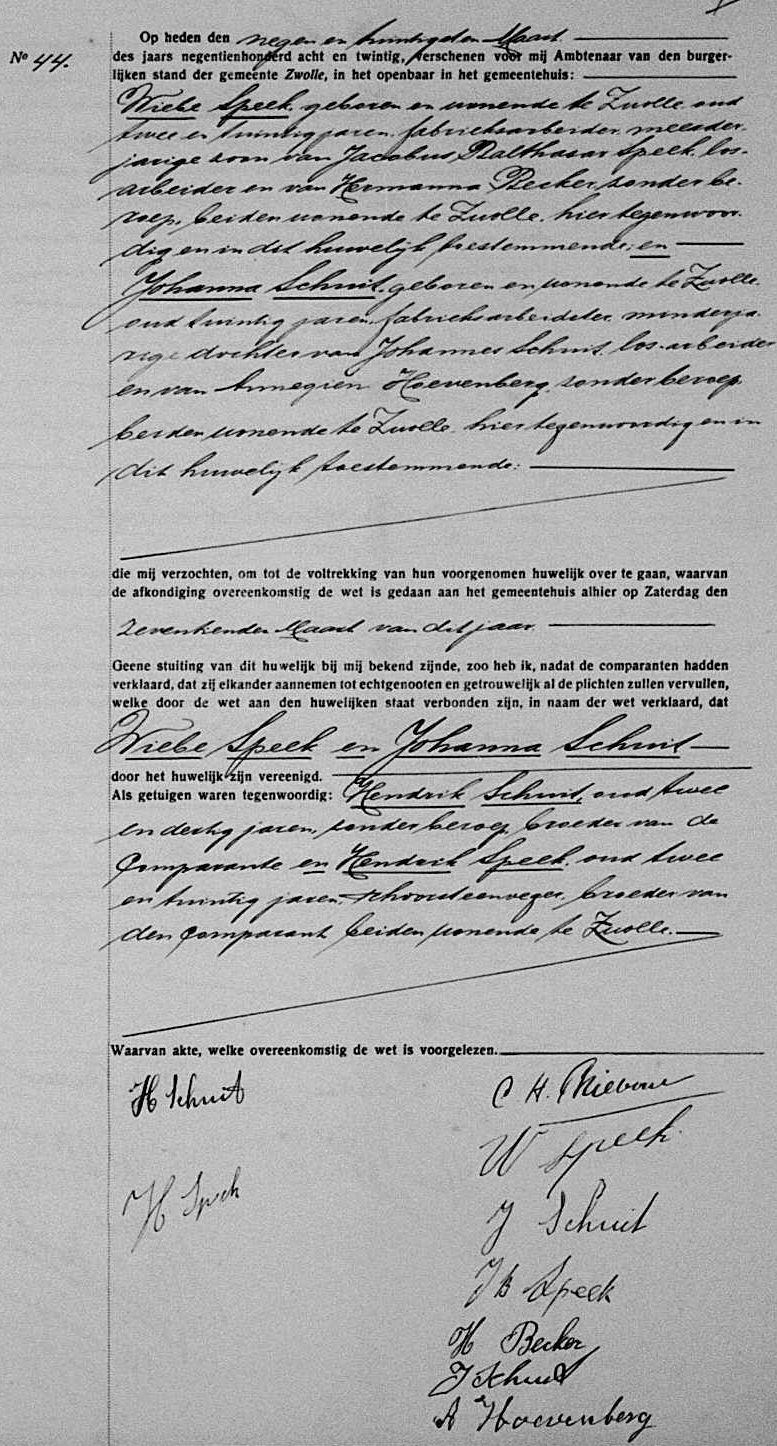 Nº 44.
Op heden den negen en twintigsten Maart
des jaars negentienhonderd acht en twintig, verschenen voor mij Ambtenaar van den burger-
lijken stand der gemeente Zwolle, in het openbaar in het gemeentehuis:
Wiebe Speek, geboren en wonende te Zwolle, oud
twee en twintig jaren, fabrieksarbeider, meerder-
jarige zoon van Jacobus Balthasar Speek, los-
arbeider en van Hermanna Becker, zonder be-
roep, beiden wonende te Zwolle, hier tegenwoor-
dig en in dit huwelijk toestemmende; en
Johanna Schuit, geboren en wonende te Zwolle,
oud twintig jaren, fabrieksarbeidster, minderja-
rige dochter van Johannes Schuit, los-arbeider
en van Annegien Hoevenberg, zonder beroep,
beiden wonende te Zwolle, hier tegenwoordig en in
dit huwelijk toestemmende:
die mij verzochten, om tot de voltrekking van hun voorgenomen huwelijk over te gaan, waarvan
de afkondiging overeenkomstig de wet is gedaan aan het gemeentehuis alhier op Zaterdag den
zeventienden Maart van dit jaar.
Geene stuiting van dit huwelijk bij mij bekend zijnde, zoo heb ik, nadat de comparanten hadden
verklaard, dat zij elkander aannemen tot echtgenooten en getrouwelijk al de plichten zullen vervullen,
welke door de wet aan den huwelijken staat verbonden zijn, in naam der wet verklaard, dat
Wiebe Speek en Johanna Schuit
door het huwelijk zijn vereenigd.
Als getuigen waren tegenwoordig: Hendrik Schuit, oud twee
en dertig jaren, zonder beroep, broeder van de
Comparante en Hendrik Speek, oud twee
en twintig jaren, schoorsteenveger, broeder van
den Comparant, beiden wonende te Zwolle.
Waarvan akte, welke overeenkomstig de wet is voorgelezen.
H Schuit
C H.
W Speek
H Speek
J Schuit
J B Speek
H Becker
J Schuit
A Hoevenberg